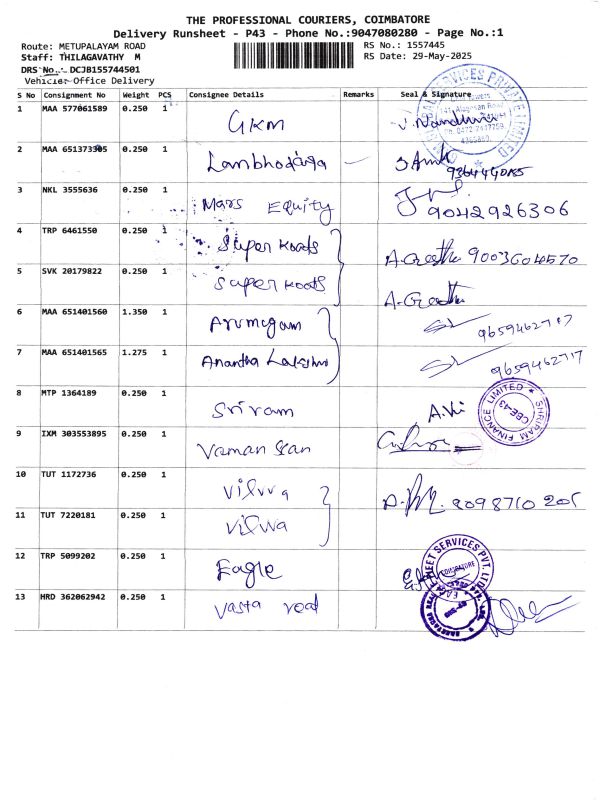 THE PROFESSIONAL COURIERS, COIMBATORE
Delivery Runsheet - P43 - Phone No.:9047080280 - Page No.:1
Route: METUPALAYAM ROAD RS No.: 1557445
Staff: THILAGAVATHY M RS Date: 29-May-2025
DRS No.: DCJB155744501
Vehicle: Office Delivery
S No Consignment No Weight PCS Consignee Details Remarks Seal & Signature
1 MAA 577061589 0.250 1 GKM
2 MAA 651373305 0.250 1 Lambhodara
3 NKL 3555636 0.250 1 Mars Equity 9042926306
4 TRP 6461550 0.250 1 Super Roots 9003604570
5 SVK 20179822 0.250 1 Super Roots
6 MAA 651401560 1.350 1 Arumugam
7 MAA 651401565 1.275 1 Anantha Lakshmi 9659462717
8 MTP 1364189 0.250 1 Sriram SHRIRAM FINANCE LIMITED CBE-43
9 IXM 303553895 0.250 1 Vaman
10 TUT 1172736 0.250 1
11 TUT 7220181 0.250 1 Vilva
12 TRP 5099202 0.250 1 Eagle COIMBATORE
13 HRD 362062942 0.250 1 Vasta